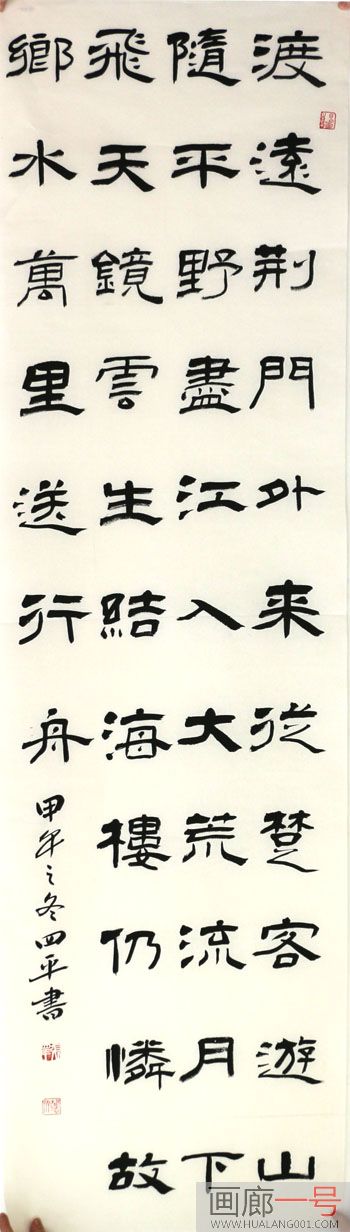 渡遠荆門外来從楚客遊山
隨平野盡江入大荒流月下
飛天鏡雲生結海樓仍憐故
鄉水萬里送行舟
甲午之冬四平書
画廊一号
WWW.HUALANG001.COM